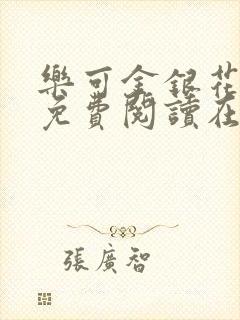 樂可金銀花
免費閱讀在
張廣智